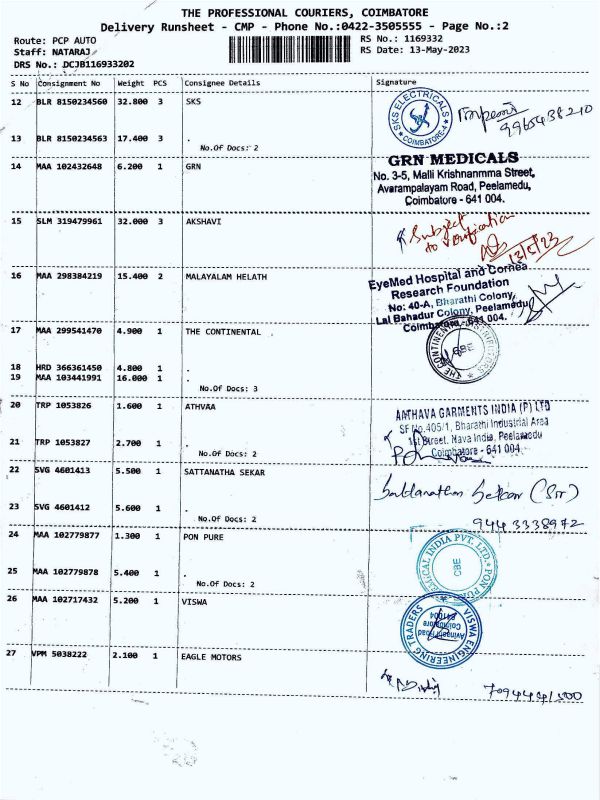 THE PROFESSIONAL COURIERS, COIMBATORE
Delivery Runsheet - CMP - Phone No.:0422-3505555 - Page No.:2
Route: PCP AUTO
Staff: NATARAJ
DRS No.: DCJB116933202
RS No.: 1169332
RS Date: 13-May-2023
S No Consignment No Weight PCS Consignee Details Signature
12 BLR 8150234560 32.800 3 SKS
SKS ELECTRICALS
COIMBATORE-4
9965438210
13 BLR 8150234563 17.400 3 .
No.Of Docs: 2
14 MAA 102432648 6.200 1 GRN
GRN MEDICALS
No. 3-5, Malli Krishnanmma Street,
Avarampalayam Road, Peelamedu,
Coimbatore - 641 004.
15 SLM 319479961 32.000 3 AKSHAVI
Subject
to verification
13/5/23
16 MAA 298384219 15.400 2 MALAYALAM HELATH
EyeMed Hospital and Cornea
Research Foundation
No: 40-A, Bharathi Colony,
Lal Bahadur Colony, Peelamedu,
Coimbatore- 641 004.
17 MAA 299541470 4.900 1 THE CONTINENTAL
THE CONTINENTAL DISTRIBUTORS
CBE
18 HRD 366361450 4.800 1 .
19 MAA 103441991 16.000 1 .
No.Of Docs: 3
20 TRP 1053826 1.600 1 ATHVAA
ANTHAVA GARMENTS INDIA (P) LTD
SF No.405/1, Bharathi Industrial Area
1st Street, Nava India, Peelamedu
Coimbatore - 641 004
21 TRP 1053827 2.700 1 .
No.Of Docs: 2
22 SVG 4601413 5.500 1 SATTANATHA SEKAR
Sattanathan Sekar (Sir)
23 SVG 4601412 5.600 1 .
No.Of Docs: 2
9443338972
24 MAA 102779877 1.300 1 PON PURE
CHEMICAL INDIA PVT. LTD. PON PURE
CBE
25 MAA 102779878 5.400 1 .
No.Of Docs: 2
26 MAA 102717432 5.200 1 VISWA
VISWA ENGINEERING TRADERS
Avinashi Road
Coimbatore
641004
27 VPM 5038222 2.100 1 EAGLE MOTORS